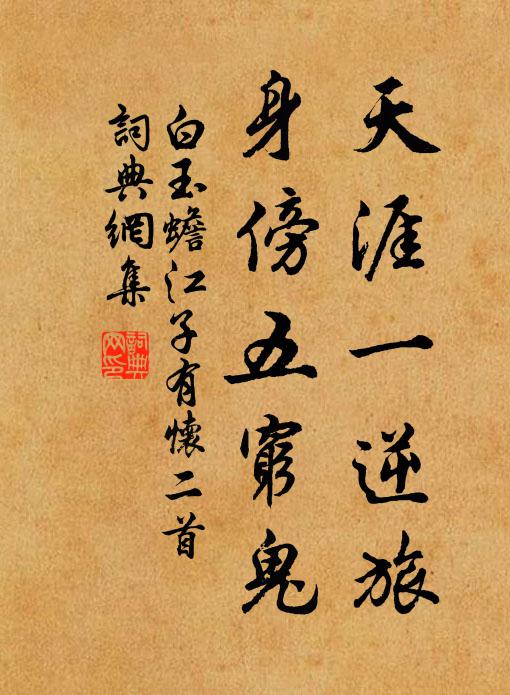 天涯一逆旅
身傍五窮鬼
白玉蟾江子有懷二首
詞典網集
詞典
网印